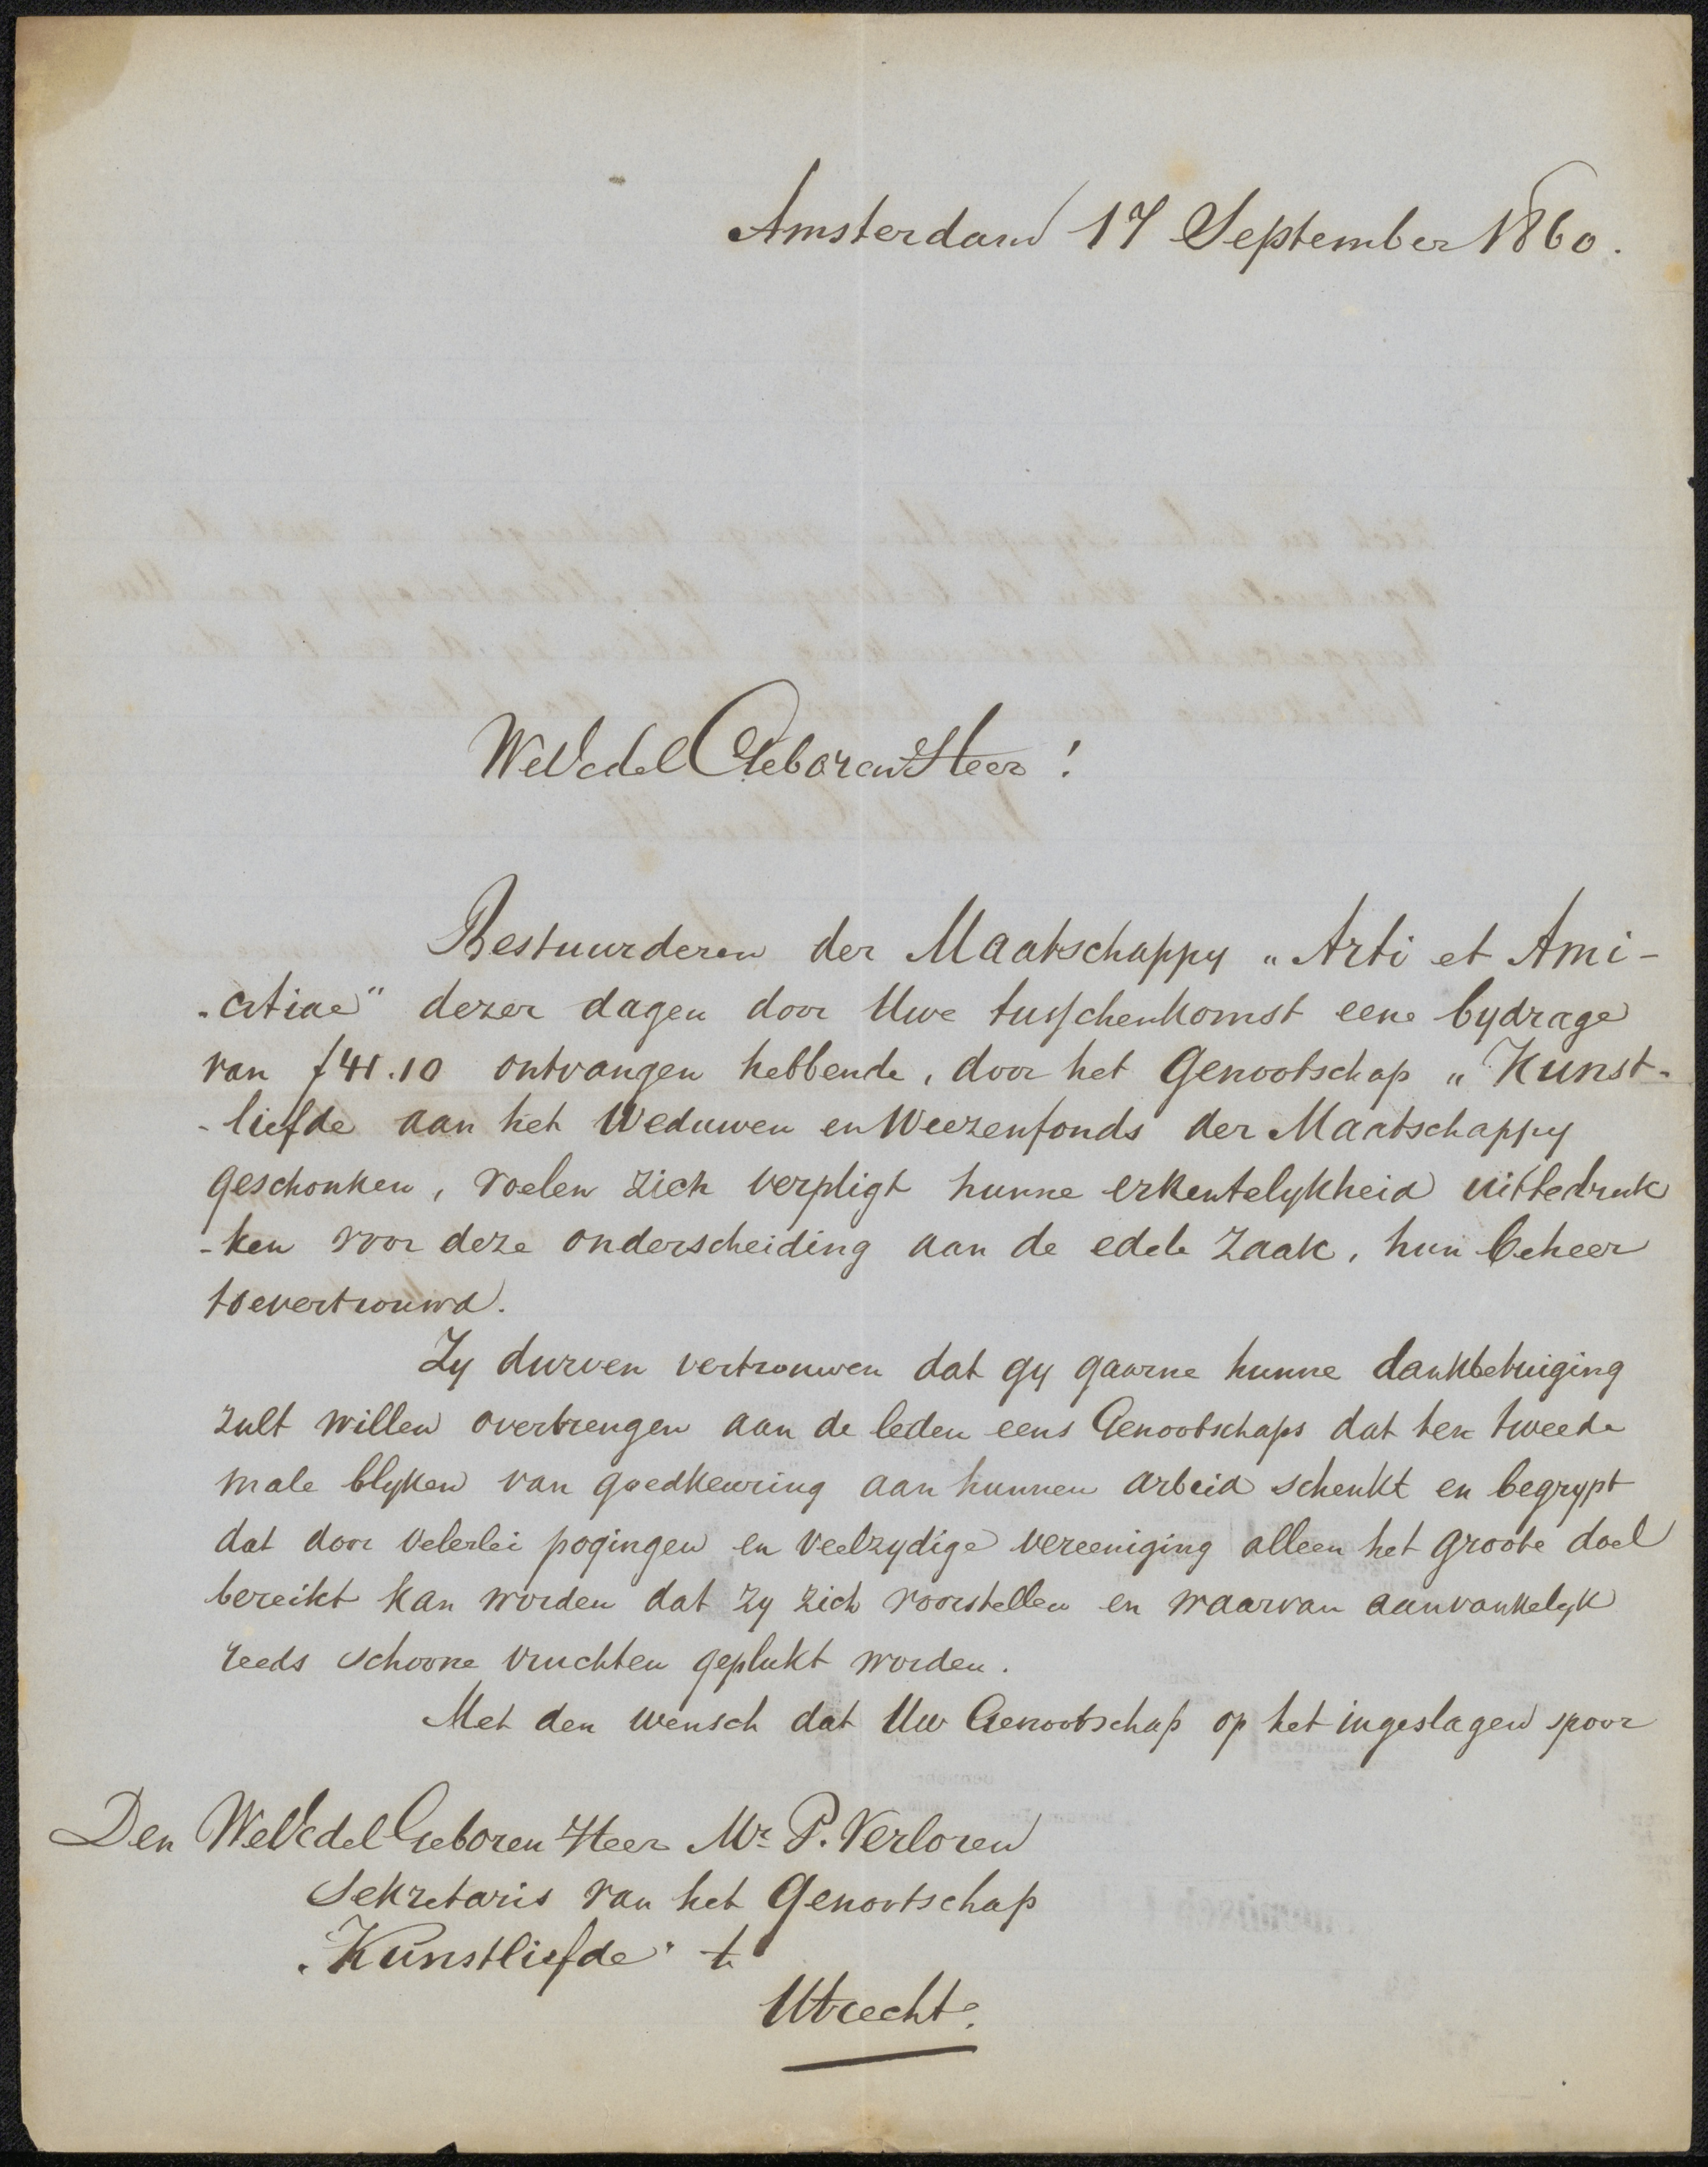 Amsterdam 17 September 1860.
WelEdel Geboren Heer !
Bestuurderen der Maatschappy „Arti et Ami-
„citiae" dezer dagen door Uwe tusschenkomst eene bydrage
van f 41.10 ontvangen hebbende, door het Genootschap „Kunst-
-liefde aan het Weduwen en Weezenfonds der Maatschappy
geschonken, voelen zich verpligt hunne erkentelykheid uittedruk
-ken voor deze onderscheiding aan de edele zaak, hun beheer
toevertrouwd.
Zy durven vertrouwen dat gy gaarne hunne dankbetuiging
zult willen overbrengen aan de leden eens Genootschaps dat ten tweede
male blyken van goedkeuring aan hunnen arbeid schenkt en begrypt
dat door velerlei pogingen en veelzydige vereeniging alleen het groote doel
bereikt kan worden dat zy zich voorstellen en waarvan aanvankelyk
reeds schoone vruchten geplukt worden.
Met den wensch dat Uw Genootschap op het ingeslagen spoor
Den WelEdel Geboren Heer Mr P. Verloren
Sekretaris van het Genootschap
„Kunstliefde" te
Utrecht.